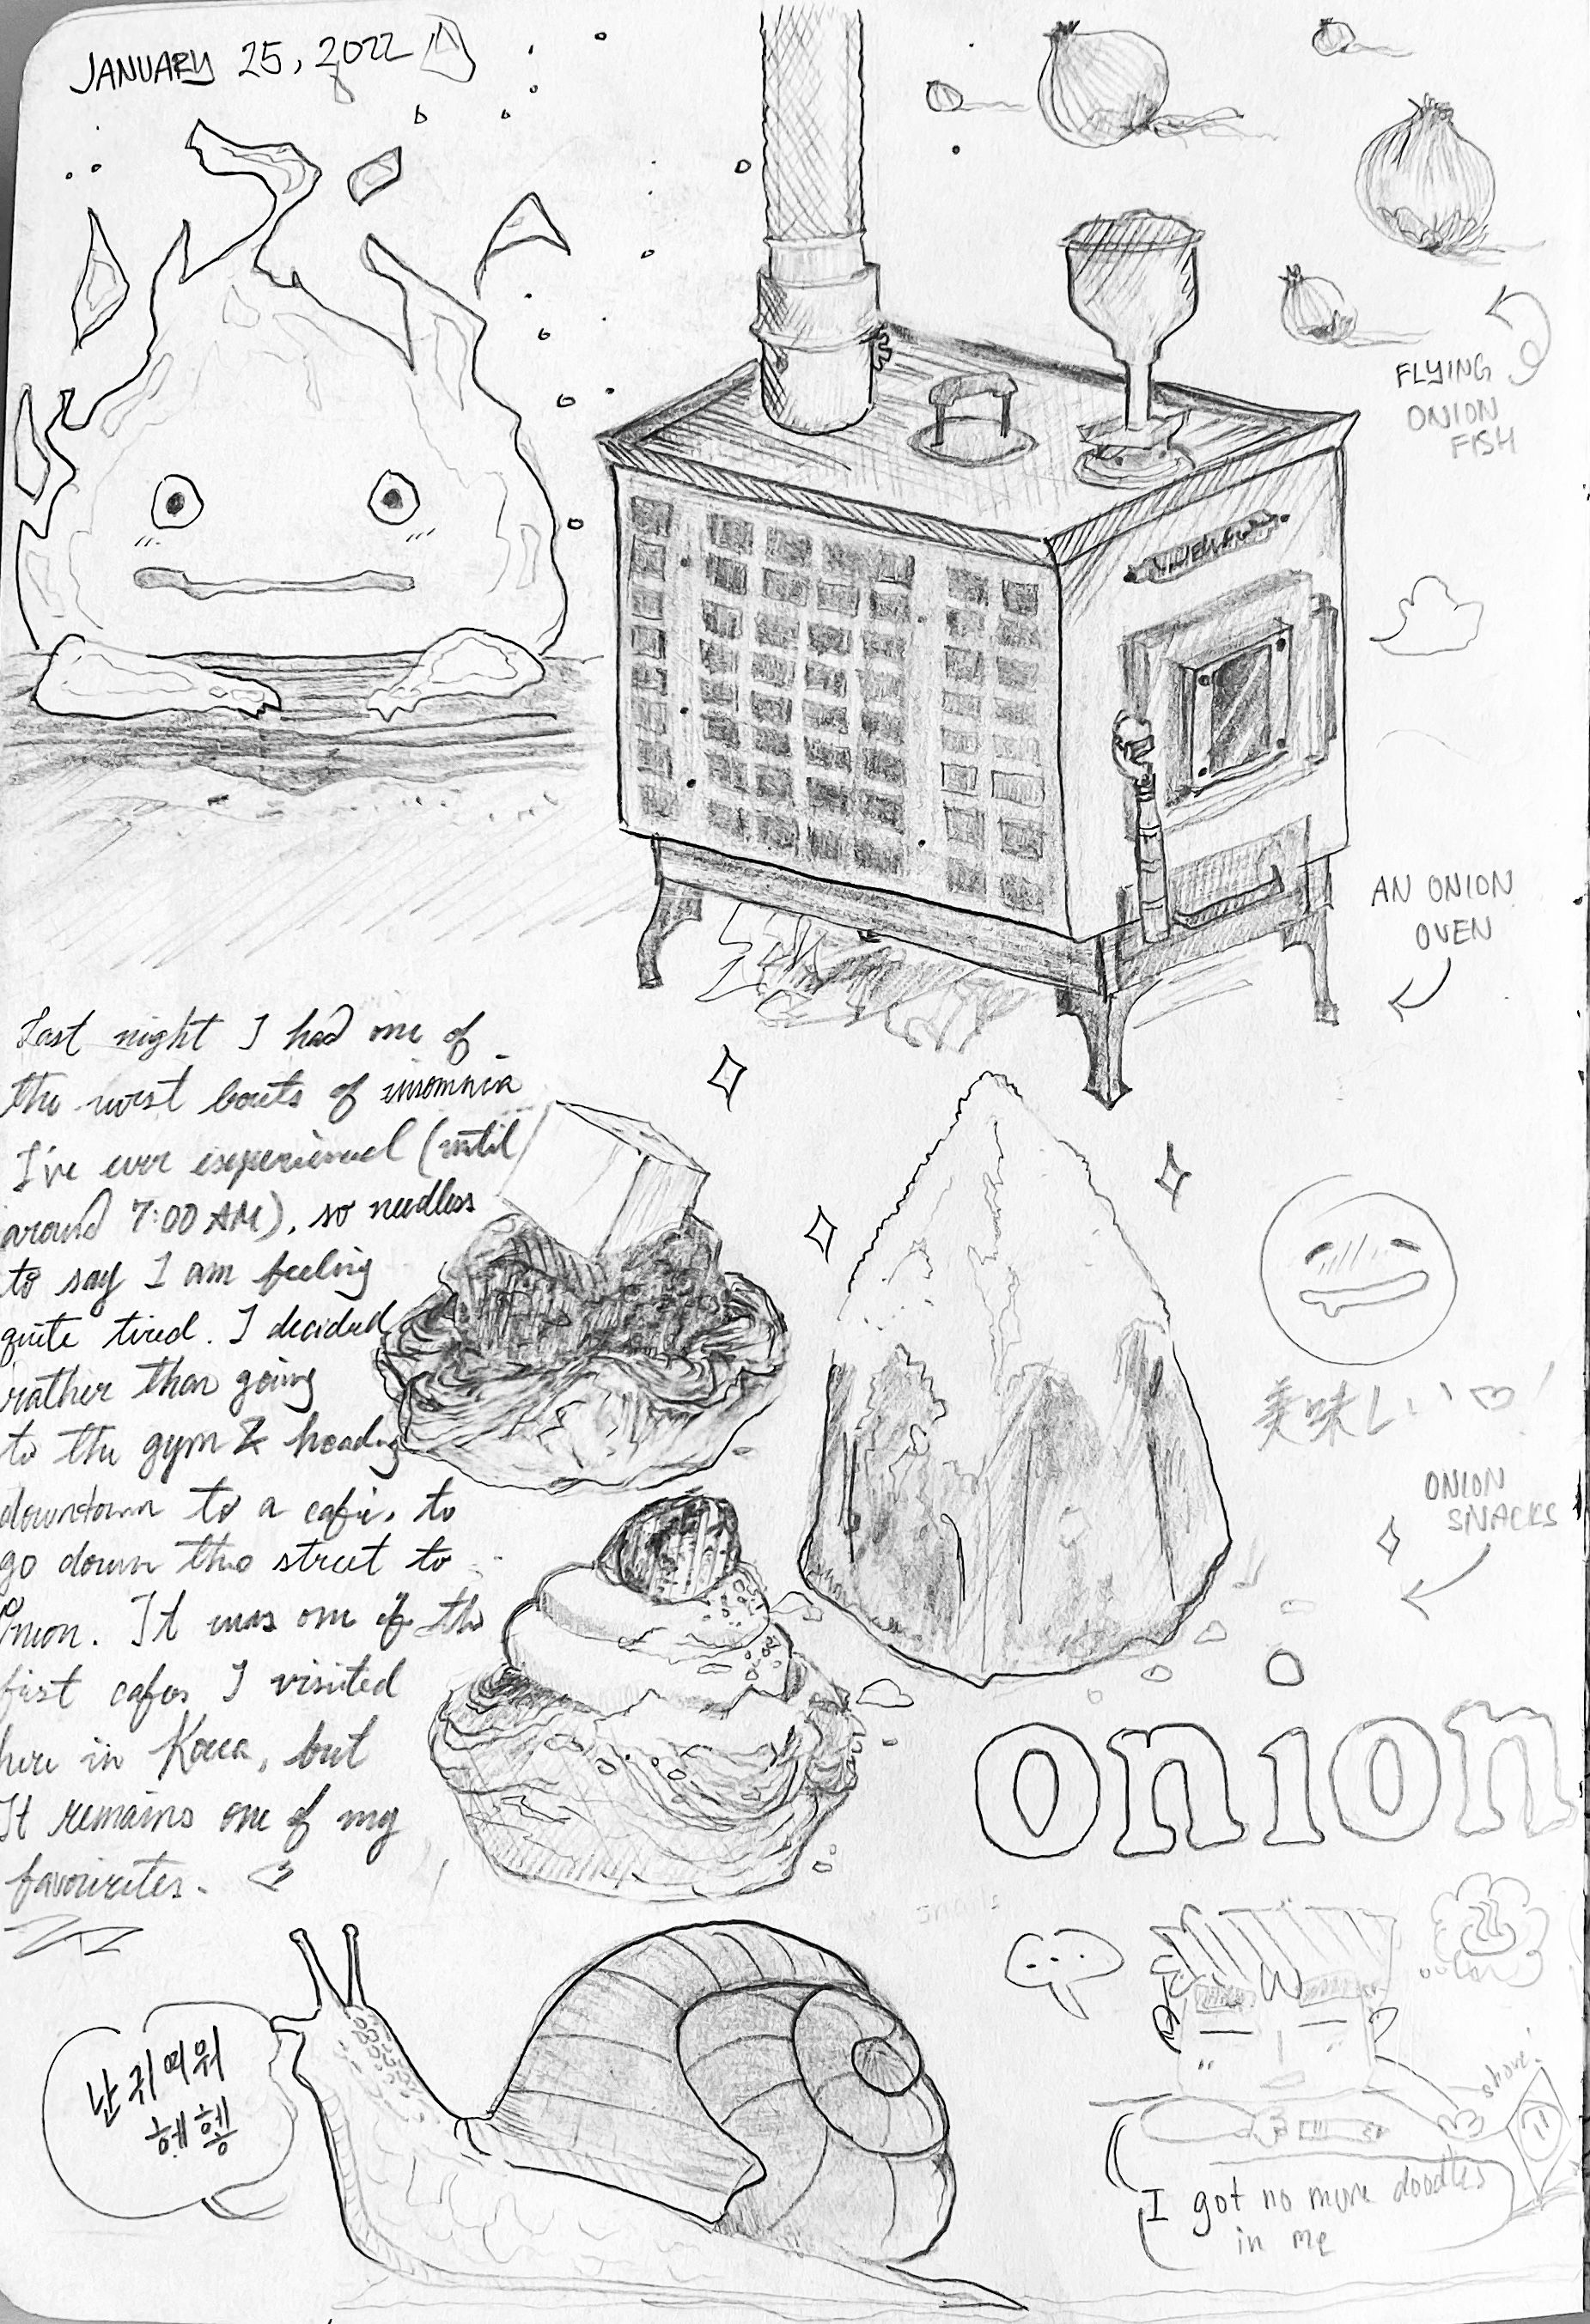 JANUARY 25, 2022
FLYING
ONION
FISH
AN ONION
OVEN
Last night I had one of
the worst bouts of insomnia
I've ever experienced (until
around 7:00 AM), so needless
to say I am feeling
quite tired. I decided
rather than going
to the gym & heading
downtown to a cafe, to
go down the street to
Onion. It was one of the
first cafes I visited
here in Korea, but
It remains one of my
favourites.
美味しい
ONION
SNACKS
onion
난 귀여워
헤헹
...
shove!
I got no more doodles
in me